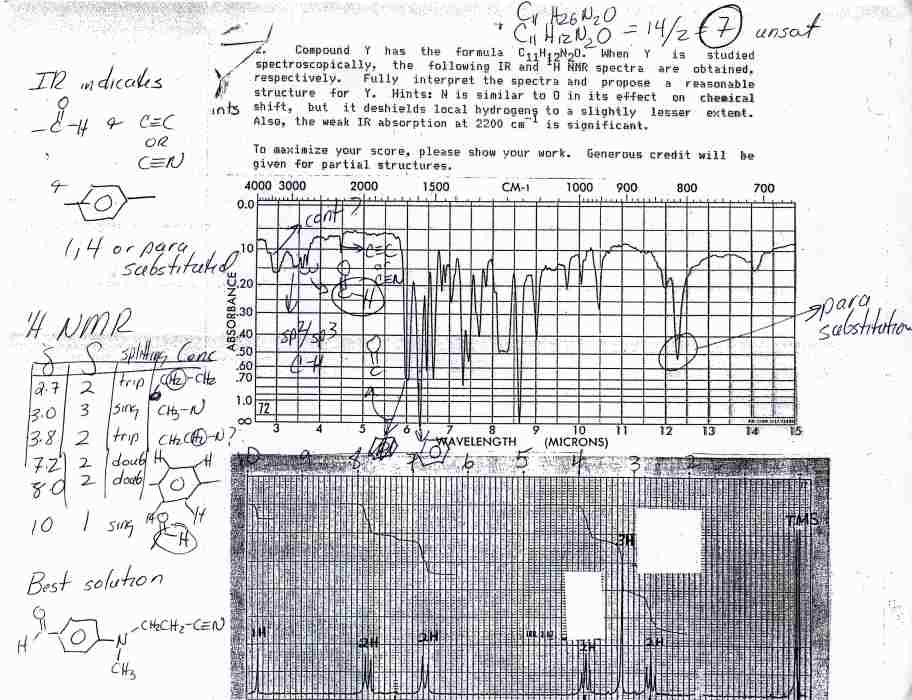 C11 H26 N2O
C11 H12 N2O = 14/2 = 7 unsat
2. Compound Y has the formula C11H12N2O. When Y is studied
spectroscopically, the following IR and 1H NMR spectra are obtained,
respectively. Fully interpret the spectra and propose a reasonable
structure for Y. Hints: N is similar to O in its effect on chemical
shift, but it deshields local hydrogens to a slightly lesser extent.
Also, the weak IR absorption at 2200 cm-1 is significant.
To maximize your score, please show your work. Generous credit will be
given for partial structures.
ints
IR indicates
O
-C-H & C≡C
OR
C≡N
&
1,4 or para
substituted
4000 3000 2000 1500 CM-1 1000 900 800 700
0.0
.10
.20
.30
.40
.50
.60
.70
1.0
∞
ABSORBANCE
cont?
C≡C
or
C≡N
O
C-H
sp2/sp3
C-H
O
C
72
3 4 5 6 7 8 9 10 11 12 13 14 15
WAVELENGTH (MICRONS)
para
substitution
1H NMR
δ S splitting Conc
2.7 2 trip CH2-CH2
3.0 3 sing CH3-N
3.8 2 trip CH2CH2-N?
7.2 2 doub H H
8.0 2 doub
H
10 1 sing O
C-H
Best solution
O
H
N
CH2CH2-C≡N
CH3
10 9 8 7 6 5 4 3 2
TMS
3H
1H
2H
2H
2H
2H